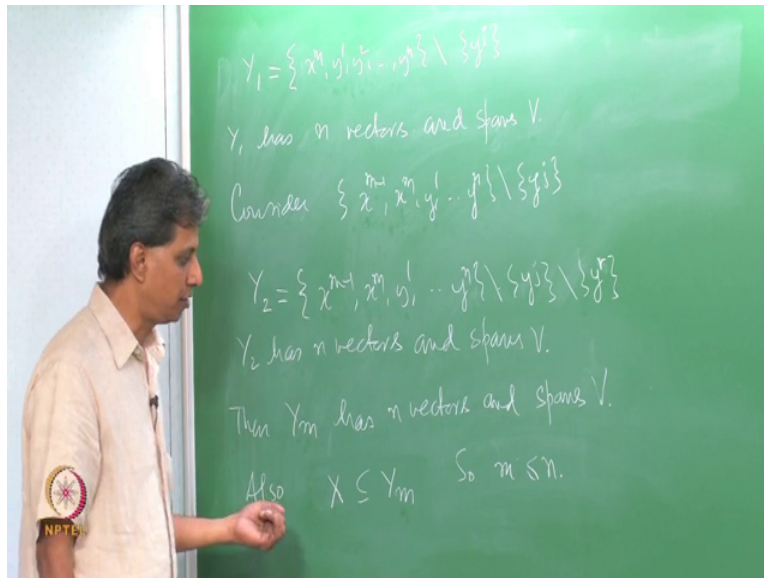 Y₁ = { xᵐ, y¹, y², ..., yⁿ} \ {yʲ}
Y₁ has n vectors and spans V.
Consider { xᵐ⁻¹, xᵐ, y¹, .. yⁿ} \ {yʲ}
Y₂ = { xᵐ⁻¹, xᵐ, y¹, .. yⁿ} \ {yʲ} \ {yʳ}
Y₂ has n vectors and spans V.
Then Yₘ has n vectors and spans V.
Also X ⊆ Yₘ So m ≤ n.
NPTEL